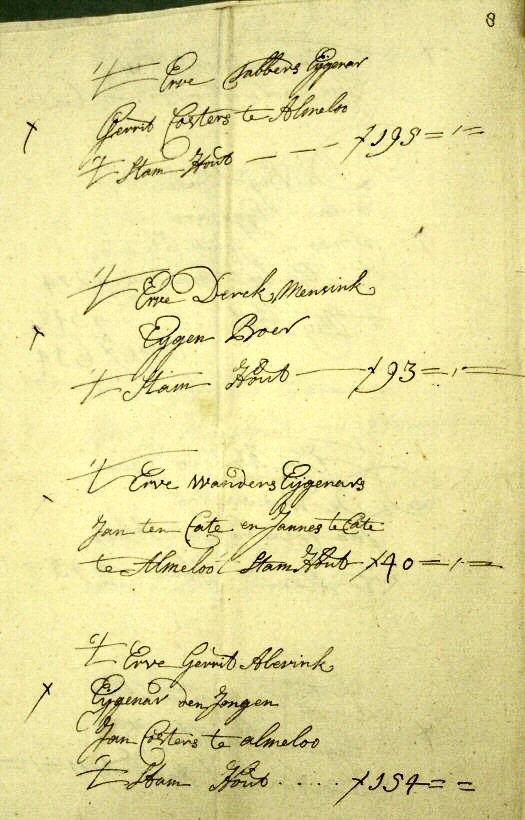 8
't Erve Sabbers Eijgenar
Gerrit Costers te Almeloo
't Stam Hout — — — ƒ 195 = , =
't Erve Derck Mensink
Eijgen Boer
't Stam Hout — ƒ 93 = , =
't Erve Wanders Eijgenars
Jan ten Cate en Jannes te Cate
te Almeloo Stam Hout ƒ 40 = , =
't Erve Gerrit Alerink
Eijgenar den Jongen
Jan Costers te almeloo
't Stam Hout ..... ƒ 154 = =